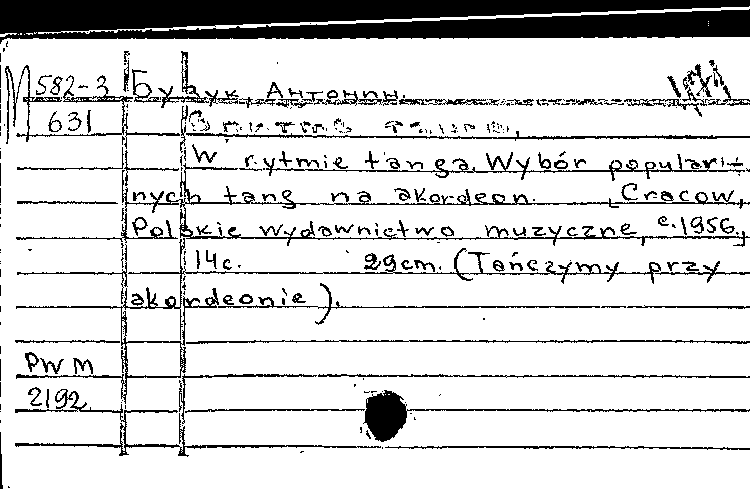 М 582-3 Бузук, Антонин.
631 В ритме танго.
W rytmie tanga. Wybór popular-
nych tang na akordeon. [Cracow,
Polskie wydawnictwo muzyczne, c.1956,]
14c. 29cm. (Tańczymy przy
akordeonie).
PWM
2192